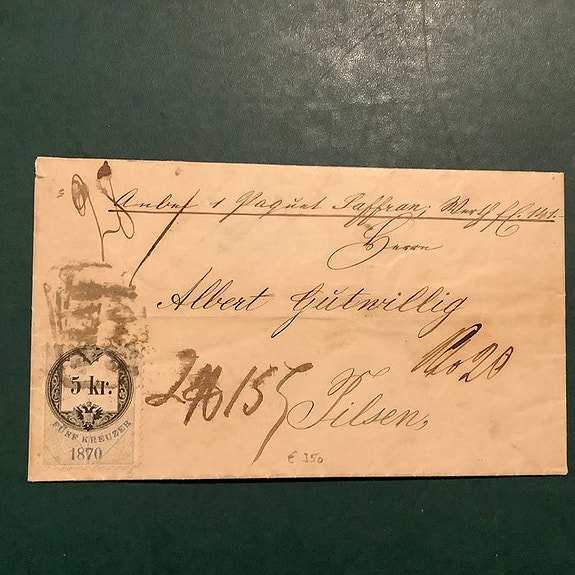 Anbei 1 Paquet Saffran; Werth fl. 141.-
Herrn
Albert Gutwillig
No 20
Pilsen,
5 kr.
FÜNF KREUZER
1870
€ 350